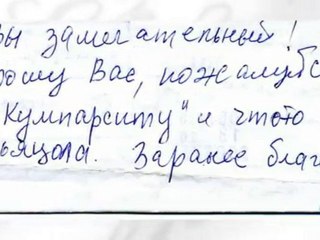 Вы замечательный!
рошу Вас, пожалуйс
Кумпарситу" и что-то
ьяцола. Заранее благ